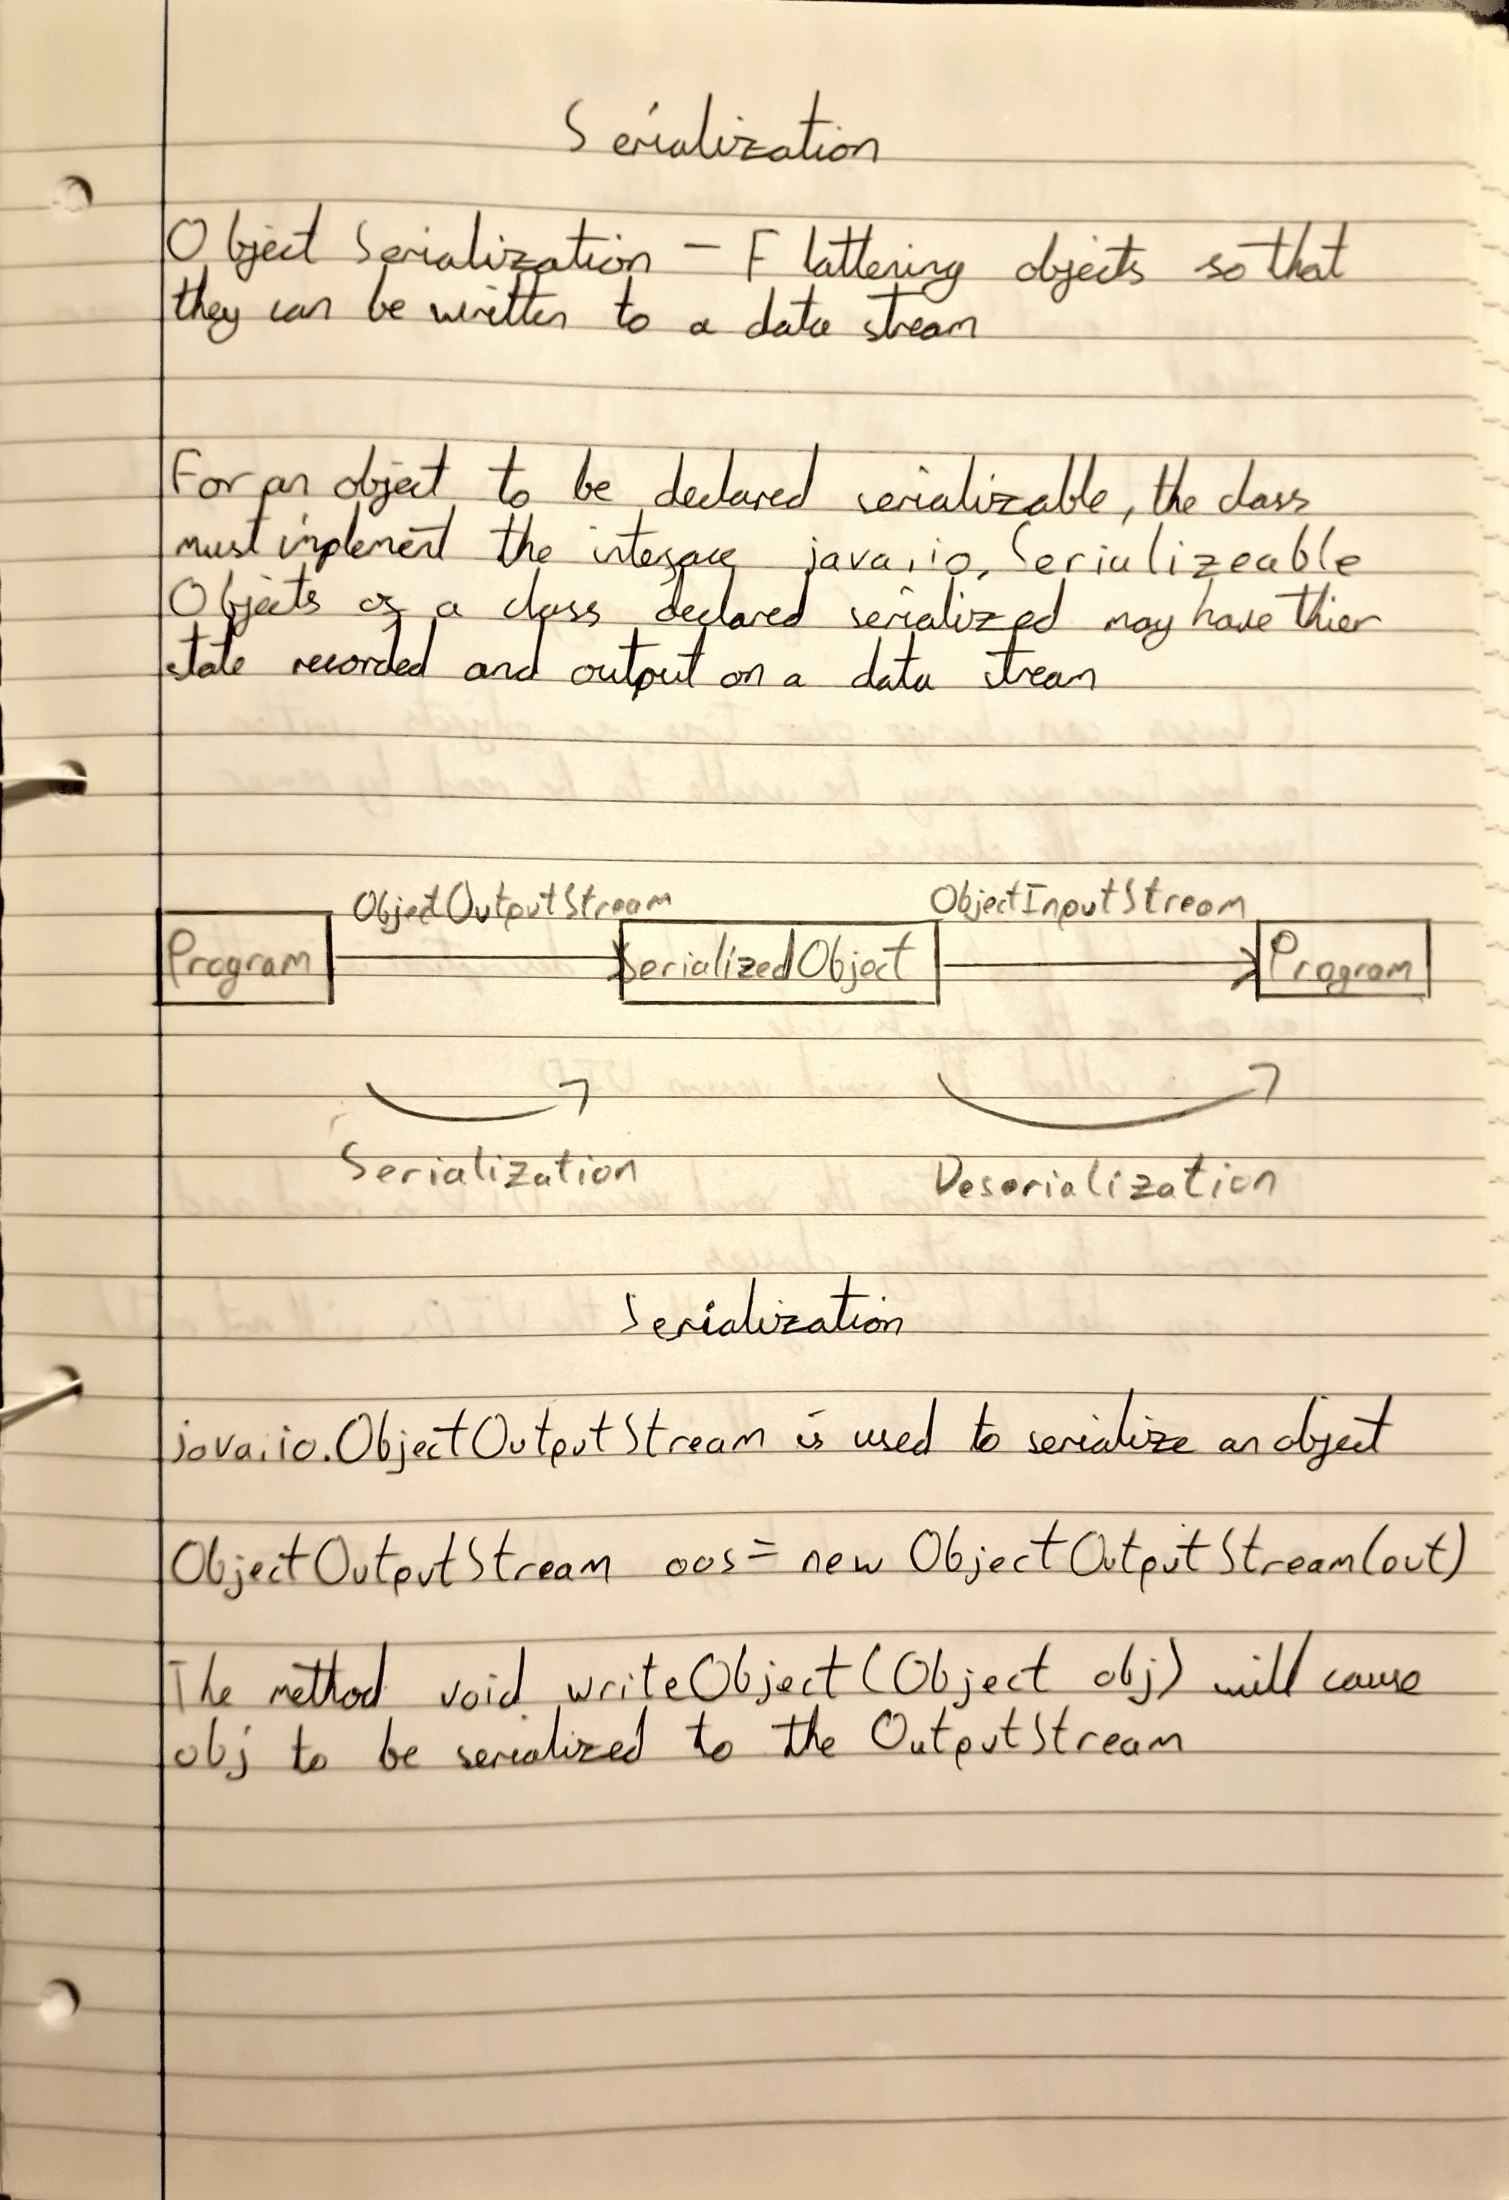 Serialization
Object Serialization - Flattering objects so that
they can be written to a data stream
For an object to be declared serializable, the class
must implement the interface java.io.Serializeable
Objects of a class declared serialized may have thier
state recorded and output on a data stream
ObjectOutputStream ObjectInputStream
Program SerializedObject Program
Serialization Deserialization
Serialization
java.io.ObjectOutputStream is used to serialize an object
ObjectOutputStream oos = new ObjectOutputStream(out)
The method void writeObject(Object obj) will cause
obj to be serialized to the OutputStream